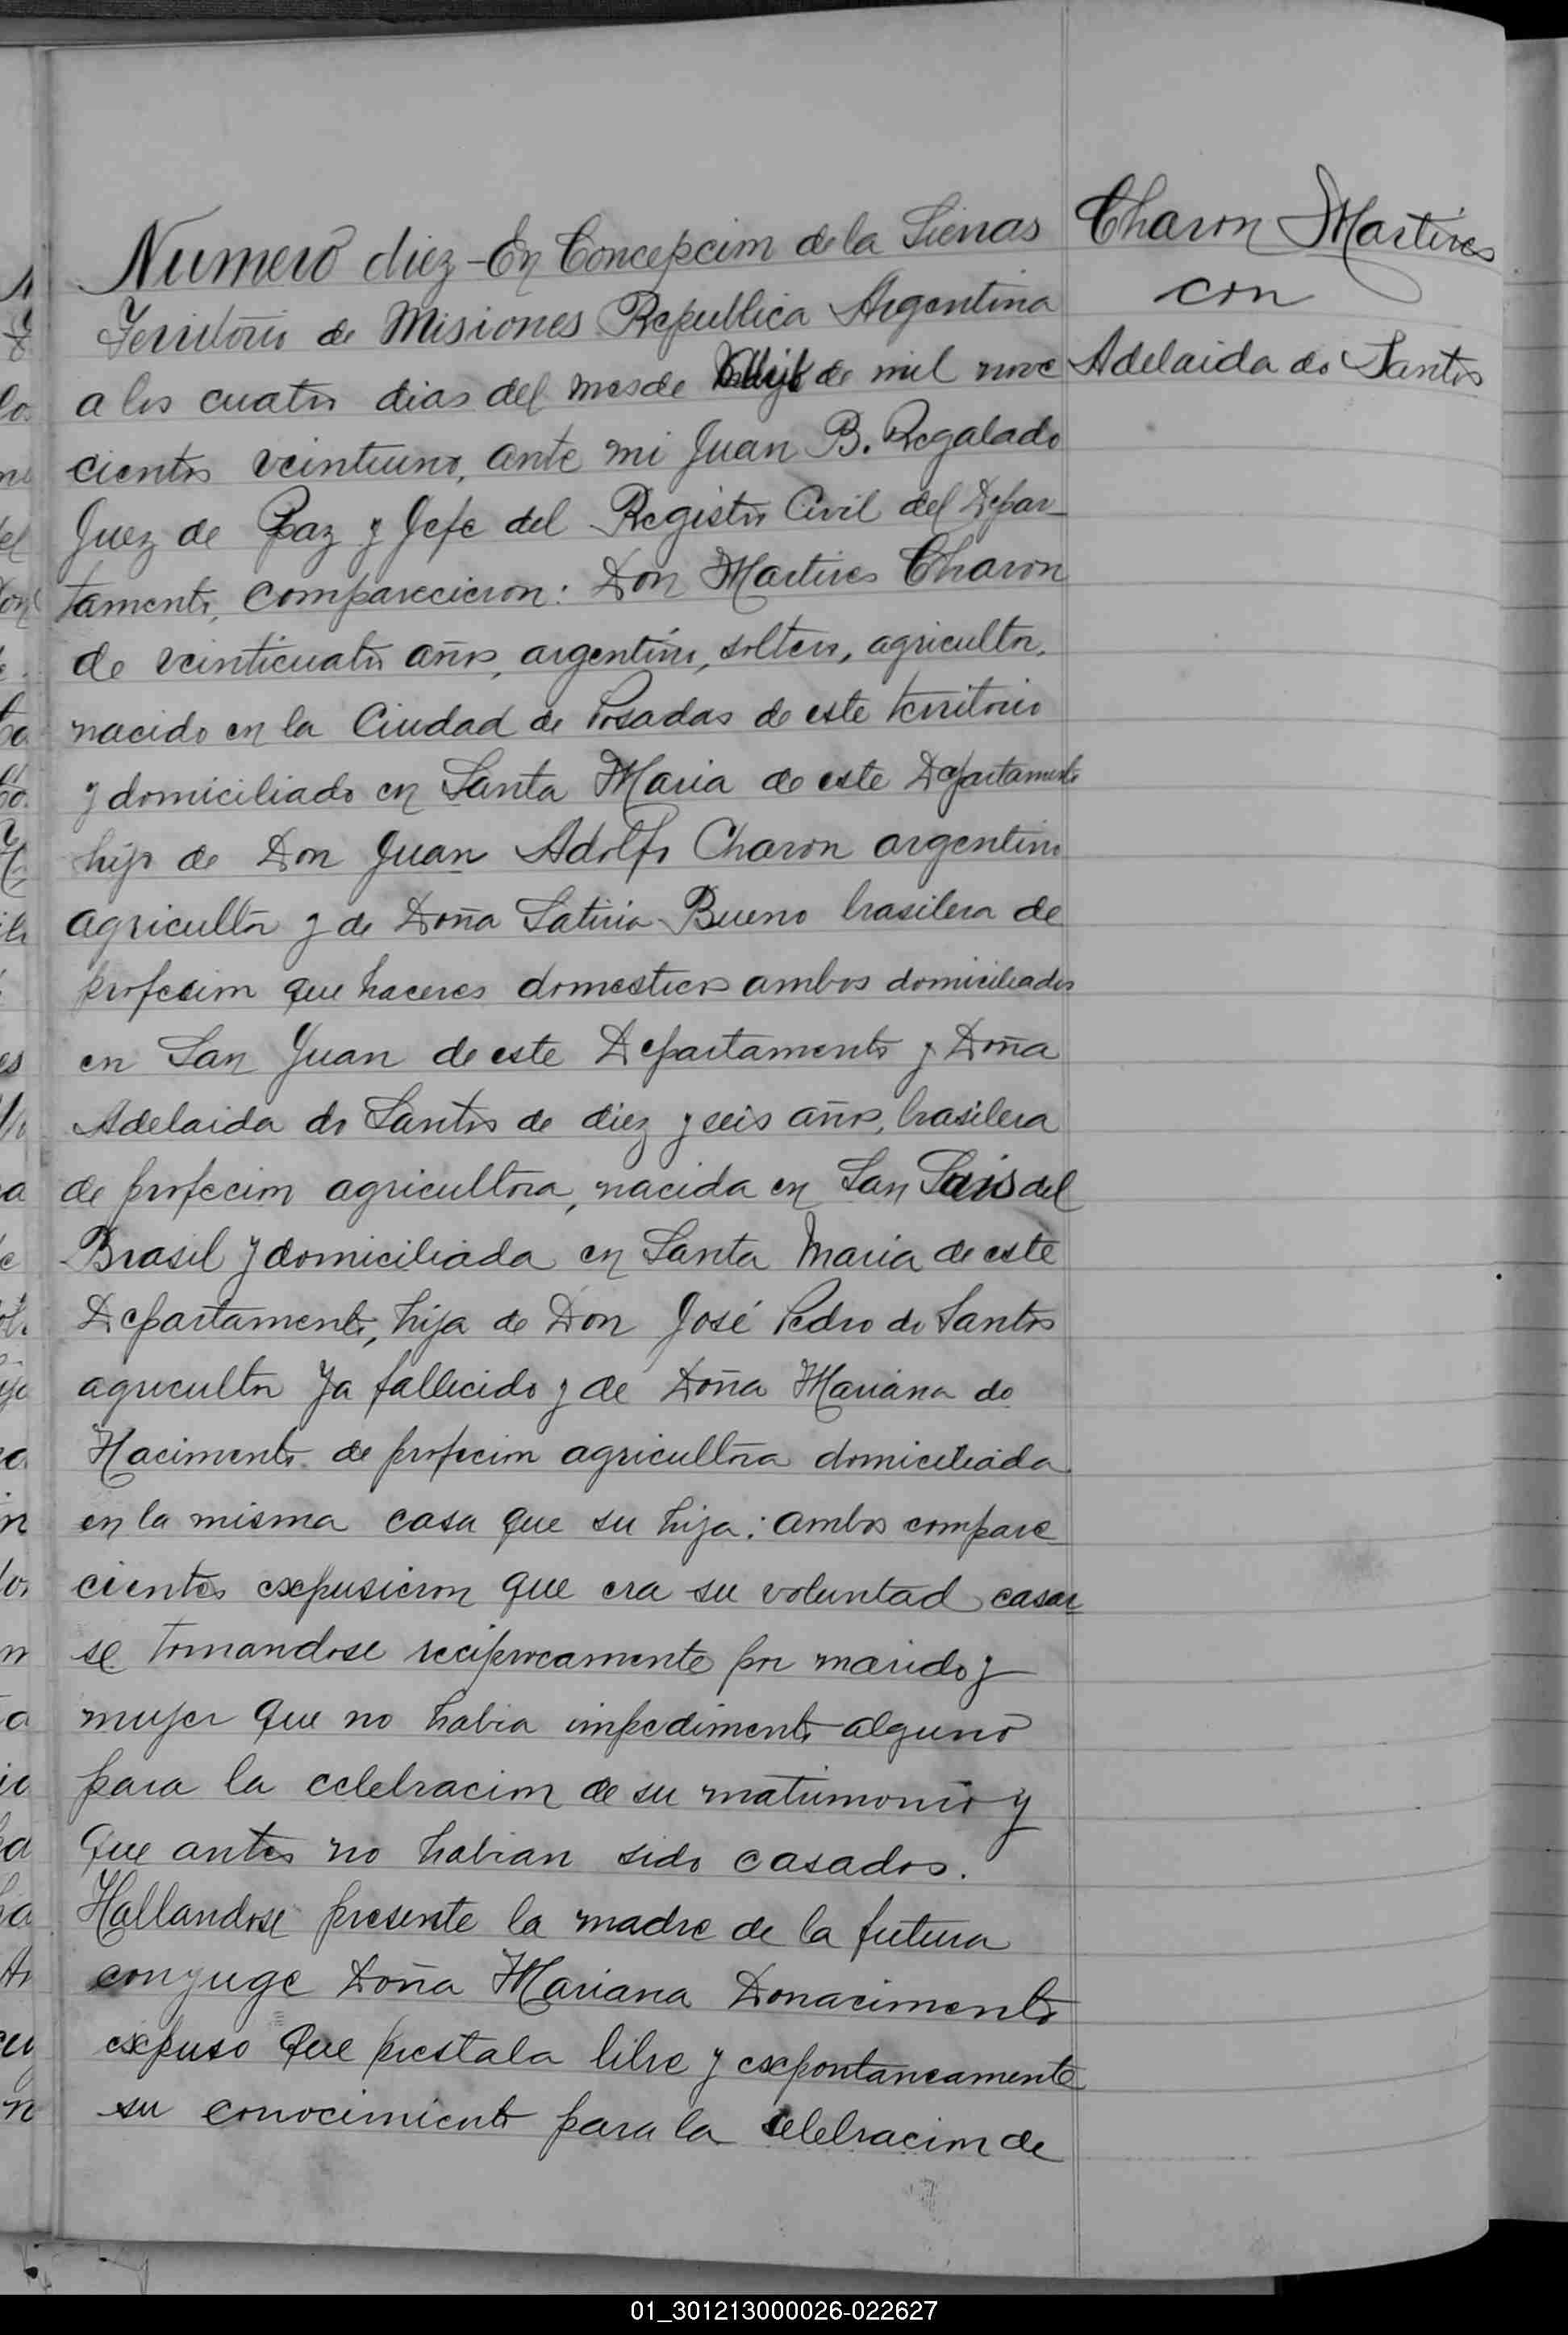 Charon Martires
con
Adelaida do Santos
Numero diez - En Concepcion de la Sierras
Territorio de Misiones Republica Argentina
a los cuatro dias del mes de de mil nove
cientos veintiuno, ante mi Juan B. Regalado
Juez de Paz y Jefe del Registro Civil del Depar-
tamento, comparecieron: Don Martires Charon
de veinticuatro años, argentino, soltero, agricultor,
nacido en la Ciudad de Posadas de este territorio
y domiciliado en Santa Maria de este Departamento
hijo de Don Juan Adolfo Charon argentino
agricultor y de Doña Satiria Bueno brasilera de
profecion que haceres domesticos ambos domiciliados
en San Juan de este Departamento y Doña
Adelaida do Santos de diez y seis años, brasilera
de profecion agricultora, nacida en San Luis del
Brasil y domiciliada en Santa Maria de este
Departamento, hija de Don José Pedro do Santos
agricultor ya fallecido y de Doña Mariana do
Nacimento de profecion agricultora domiciliada
en la misma casa que su hija: ambos compare
cientes expusieron que era su voluntad casar
se tomandose reciprocamente por marido y
mujer que no habia impedimento alguno
para la celebracion de su matrimonio y
que antes no habian sido casados.
Hallandose presente la madre de la futura
conyuge Doña Mariana Donacimento
expuso que prestaba libre y expontaneamente
su conocimiento para la celebracion de
01_301213000026-022627